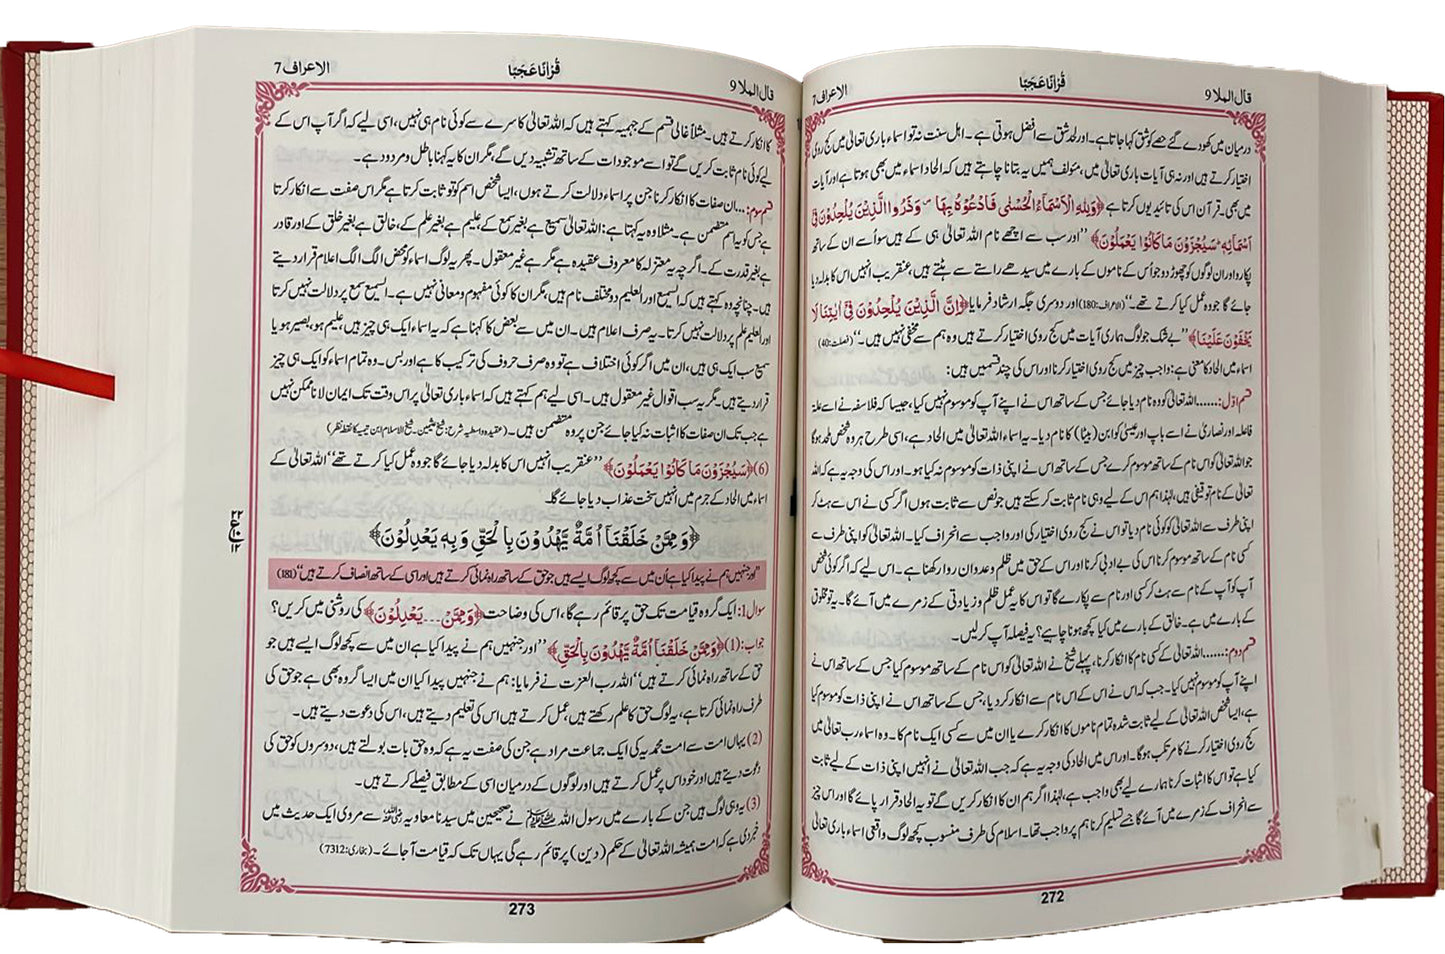 قال الملا 9 قُرْاٰنًا عَجَبًا الاعراف 7
درمیان میں کھودے گئے حصے کو شق کہا جاتا ہے۔ اور لحد شق سے افضل ہوتی ہے۔ اہل سنت نہ تو اسماء باری تعالیٰ میں کج روی
اختیار کرتے ہیں اور نہ ہی آیات باری تعالیٰ میں، مؤلف ہمیں یہ بتانا چاہتے ہیں کہ الحاد اسماء میں بھی ہوتا ہے اور آیات
میں بھی۔ قرآن اس کی تائید یوں کرتا ہے ﴿وَلِلّٰهِ الْاَسْمَآءُ الْحُسْنٰى فَادْعُوْهُ بِهَا ۪ وَذَرُوا الَّذِيْنَ يُلْحِدُوْنَ فِيْٓ
اَسْمَآئِهٖ ؕ سَيُجْزَوْنَ مَا كَانُوْا يَعْمَلُوْنَ﴾ ”اور سب سے اچھے نام اللہ تعالیٰ ہی کے ہیں سو اُسے ان کے ساتھ
پکارو اور ان لوگوں کو چھوڑ دو جو اُس کے ناموں کے بارے میں سیدھے راستے سے ہٹتے ہیں، عنقریب انہیں اس کا بدلہ دیا
جائے گا جو وہ عمل کیا کرتے تھے۔“ (الاعراف:180) اور دوسری جگہ ارشاد فرمایا ﴿اِنَّ الَّذِيْنَ يُلْحِدُوْنَ فِيْٓ اٰيٰتِنَا لَا
يَخْفَوْنَ عَلَيْنَا﴾ ”بے شک جو لوگ ہماری آیات میں کج روی اختیار کرتے ہیں وہ ہم سے مخفی نہیں ہیں۔“ (فصلت:40)
اسماء میں الحاد کا معنی ہے: واجب چیز میں کج روی اختیار کرنا اور اس کی چند قسمیں ہیں:
قسم اول:...... اللہ تعالیٰ کو وہ نام دیا جائے جس کے ساتھ اس نے اپنے آپ کو موسوم نہیں کیا، جیسا کہ فلاسفہ نے اسے علۃ
فاعلہ اور نصاریٰ نے اسے باپ اور عیسیٰ کو ابن (بیٹا) کا نام دیا۔ یہ اسماء اللہ تعالیٰ میں الحاد ہے، اسی طرح ہر وہ شخص ملحد ہوگا
جو اللہ تعالیٰ کو اس نام کے ساتھ موسوم کرے جس کے ساتھ اس نے اپنی ذات کو موسوم نہ کیا ہو۔ اور اس کی وجہ یہ ہے کہ اللہ
تعالیٰ کے نام توقیفی ہیں، لہٰذا ہم اس کے لیے وہی نام ثابت کر سکتے ہیں جو نص سے ثابت ہوں اگر کسی نے اس سے ہٹ کر
اپنی طرف سے اللہ تعالیٰ کو کوئی نام دیا تو اس نے کج روی اختیار کی اور واجب سے انحراف کیا۔ اللہ تعالیٰ کو اپنی طرف سے
کسی نام کے ساتھ موسوم کرنا اس کی بے ادبی کرنا اور اس کے حق میں ظلم و عدوان روا رکھنا ہے۔ اس لیے کہ اگر کوئی شخص
آپ کو آپ کے نام سے ہٹ کر کسی اور نام سے پکارے گا تو اس کا یہ عمل ظلم و زیادتی کے زمرے میں آئے گا۔ یہ تو مخلوق
کے بارے میں ہے۔ خالق کے بارے میں کیا کچھ ہونا چاہیے؟ یہ فیصلہ آپ کر لیں۔
قسم دوم:...... اللہ تعالیٰ کے کسی نام کا انکار کرنا، پہلے شیخ نے اللہ تعالیٰ کو اس نام کے ساتھ موسوم کیا جس کے ساتھ اس نے
اپنے آپ کو موسوم نہیں کیا۔ جب کہ اس نے اس کے اس نام سے انکار کر دیا، جس کے ساتھ اس نے اپنی ذات کو موسوم کیا
ہے، ایسا شخص اللہ تعالیٰ کے لیے ثابت شدہ تمام ناموں کا انکار کرے یا ان میں سے کسی ایک نام کا۔ وہ اسماء رب تعالیٰ میں
کج روی اختیار کرنے کا مرتکب ہوگا۔ اور اس میں الحاد کی وجہ یہ ہے کہ جب اللہ تعالیٰ نے انہیں اپنی ذات کے لیے ثابت
کیا ہے تو اس کا اثبات کرنا ہمارے لیے بھی واجب ہے، لہٰذا اگر ہم ان کا انکار کریں گے تو یہ الحاد قرار پائے گا اور اس چیز
سے انحراف کے زمرے میں آئے گا جسے تسلیم کرنا ہم پر واجب تھا۔ اسلام کی طرف منسوب کچھ لوگ واقعی اسماء باری تعالیٰ
272
قال الملا 9 قُرْاٰنًا عَجَبًا الاعراف 7
کا انکار کرتے ہیں۔ مثلاً غالی قسم کے جہمیہ کہتے ہیں کہ اللہ تعالیٰ کا سرے سے کوئی نام ہی نہیں، اسی لیے کہ اگر آپ اس کے
لیے کوئی نام ثابت کریں گے تو اسے موجودات کے ساتھ تشبیہ دیں گے، مگر ان کا یہ کہنا باطل و مردود ہے۔
قسم سوم:... ان صفات کا انکار کرنا جن پر اسماء دلالت کرتے ہوں، ایسا شخص اسم کو تو ثابت کرتا ہے مگر اس صفت سے انکار کرتا
ہے جس کو یہ اسم متضمن ہے۔ مثلا وہ یہ کہتا ہے: اللہ تعالیٰ سمیع ہے بغیر سمع کے، علیم ہے بغیر علم کے، خالق ہے بغیر خلق کے اور قادر
ہے بغیر قدرت کے۔ اگرچہ یہ معتزلہ کا معروف عقیدہ ہے مگر ہے غیر معقول۔ پھر یہ لوگ اسماء کو محض الگ الگ اعلام قرار دیتے
ہیں۔ چنانچہ وہ کہتے ہیں کہ السمیع اور العلیم دو مختلف نام ہیں، مگر ان کا کوئی مفہوم و معانی نہیں ہے۔ السمیع سمع پر دلالت نہیں کرتا
اور العلیم علم پر دلالت نہیں کرتا۔ یہ صرف اعلام ہیں۔ ان میں سے بعض کا کہنا ہے کہ یہ اسماء ایک ہی چیز ہیں، علیم ہو، بصیر ہو یا
سمیع سب ایک ہی ہیں، ان میں اگر کوئی اختلاف ہے تو وہ صرف حروف کی ترکیب کا ہے اور بس۔ وہ تمام اسماء کو ایک ہی چیز
قرار دیتے ہیں۔ مگر یہ سب اقوال غیر معقول ہیں۔ اسی لیے ہم کہتے ہیں کہ اسماء باری تعالیٰ پر اس وقت تک ایمان لانا ممکن نہیں
ہے جب تک ان صفات کا اثبات نہ کیا جائے جن پر وہ متضمن ہیں۔ (عقیدہ واسطیہ شرح: شیخ عثیمین۔ شیخ الاسلام ابن تیمیہ کا نقطہ نظر)
(6) ﴿سَيُجْزَوْنَ مَا كَانُوْا يَعْمَلُوْنَ﴾ ”عنقریب انہیں اس کا بدلہ دیا جائے گا جو وہ عمل کیا کرتے تھے“ اللہ تعالیٰ کے
اسماء میں الحاد کے جرم میں انہیں سخت عذاب دیا جائے گا۔
﴿وَمِمَّنْ خَلَقْنَآ اُمَّةٌ يَّهْدُوْنَ بِالْحَقِّ وَبِهٖ يَعْدِلُوْنَ﴾
”اور جنہیں ہم نے پیدا کیا ہے اُن میں سے کچھ لوگ ایسے ہیں جو حق کے ساتھ راہ نمائی کرتے ہیں اور اسی کے ساتھ انصاف کرتے ہیں“ (181)
سوال 1: ایک گروہ قیامت تک حق پر قائم رہے گا، اس کی وضاحت ﴿وَمِمَّنْ... يَعْدِلُوْنَ﴾ کی روشنی میں کریں؟
جواب: (1) ﴿وَمِمَّنْ خَلَقْنَآ اُمَّةٌ يَّهْدُوْنَ بِالْحَقِّ﴾ ”اور جنہیں ہم نے پیدا کیا ہے ان میں سے کچھ لوگ ایسے ہیں جو
حق کے ساتھ راہ نمائی کرتے ہیں“ اللہ رب العزت نے فرمایا: ہم نے جنہیں پیدا کیا ان میں ایسا گروہ بھی ہے جو حق کی
طرف راہ نمائی کرتا ہے، یہ لوگ حق کا علم رکھتے ہیں، عمل کرتے ہیں اس کی تعلیم دیتے ہیں، اس کی دعوت دیتے ہیں۔
(2) یہاں امت سے امت محمدیہ کی ایک جماعت مراد ہے جن کی صفت یہ ہے کہ وہ حق بات بولتے ہیں، دوسروں کو حق کی
دعوت دیتے ہیں اور خود اس پر عمل کرتے ہیں اور لوگوں کے درمیان اسی کے مطابق فیصلے کرتے ہیں۔
(3) یہ وہی لوگ ہیں جن کے بارے میں رسول اللہ ﷺ نے صحیحین میں سیدنا معاویہ رضی اللہ عنہ سے مروی ایک حدیث میں
خبر دی ہے کہ امت ہمیشہ اللہ تعالیٰ کے حکم (دین) پر قائم رہے گی یہاں تک کہ قیامت آجائے۔ (بخاری:7312)
273